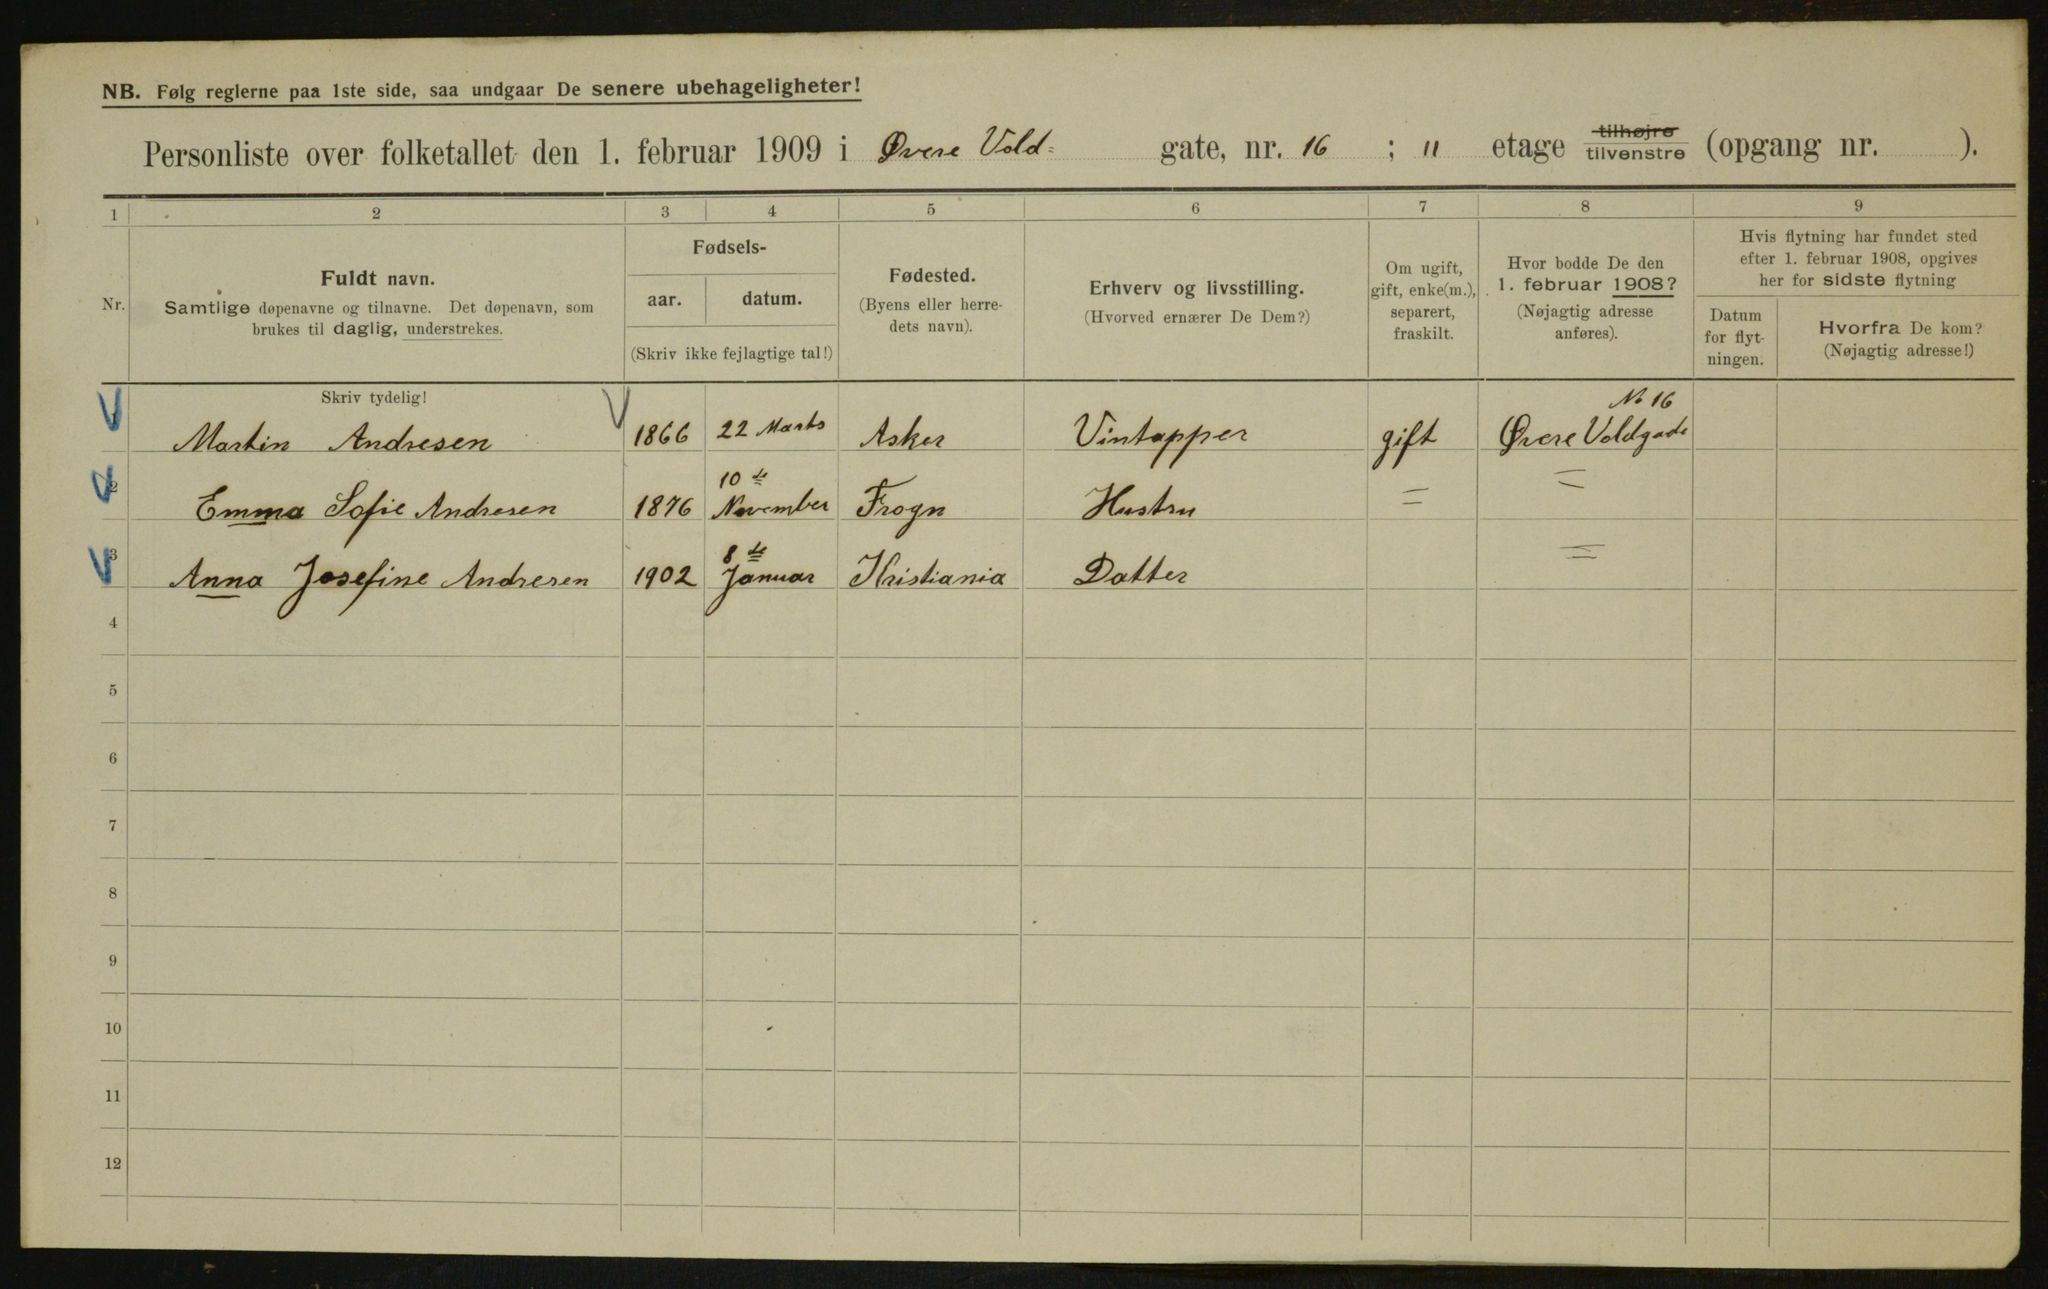 NB. Følg reglerne paa 1ste side, saa undgaar De senere ubehageligheter!
Personliste over folketallet den 1. februar 1909 i Øvre Vold= gate, nr. 16 ; II etage tilhøjre tilvenstre (opgang nr. ).
1 2 3 4 5 6 7 8 9
Nr.
Fuldt navn.
Samtlige døpenavne og tilnavne. Det døpenavn, som
brukes til daglig, understrekes.
Fødsels-
aar. datum.
(Skriv ikke fejlagtige tal!)
Fødested.
(Byens eller herre-
dets navn).
Erhverv og livsstilling.
(Hvorved ernærer De Dem?)
Om ugift,
gift, enke(m.),
separert,
fraskilt.
Hvor bodde De den
1. februar 1908?
(Nøjagtig adresse
anføres).
Hvis flytning har fundet sted
efter 1. februar 1908, opgives
her for sidste flytning
Datum
for flyt-
ningen.
Hvorfra De kom?
(Nøjagtig adresse!)
Skriv tydelig!
1 Martin Andresen 1866 22 Marts Asker Vintapper gift Øvere Voldgade No 16
2 Emma Sofie Andresen 1876 10de November Frogn Hustru = =
3 Anna Josefine Andresen 1902 8de Januar Kristiania Datter =
4
5
6
7
8
9
10
11
12